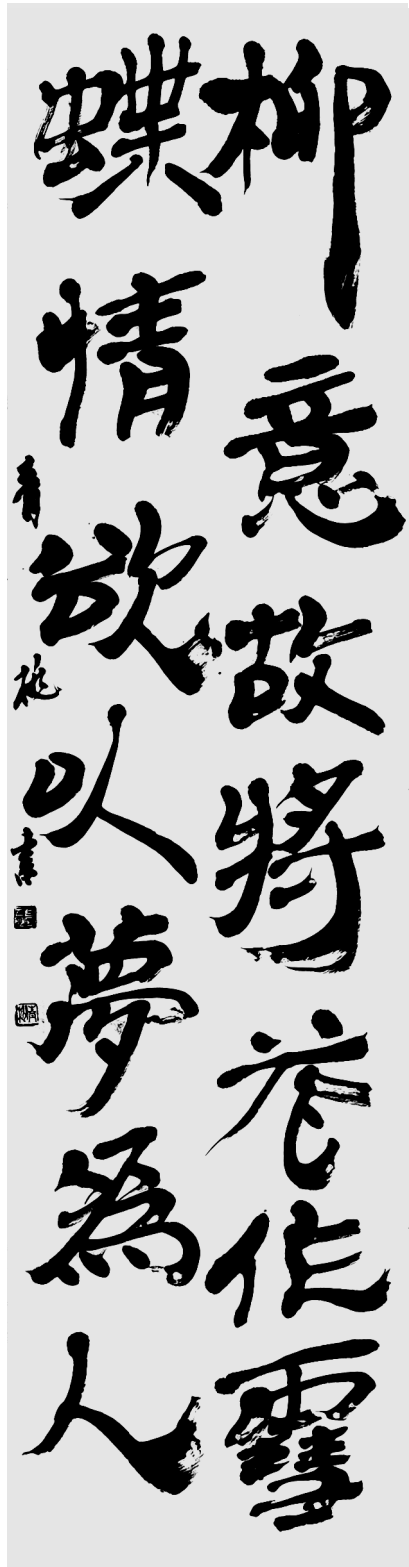 柳意故將花作雪
蝶情欲以夢為人
青桃書